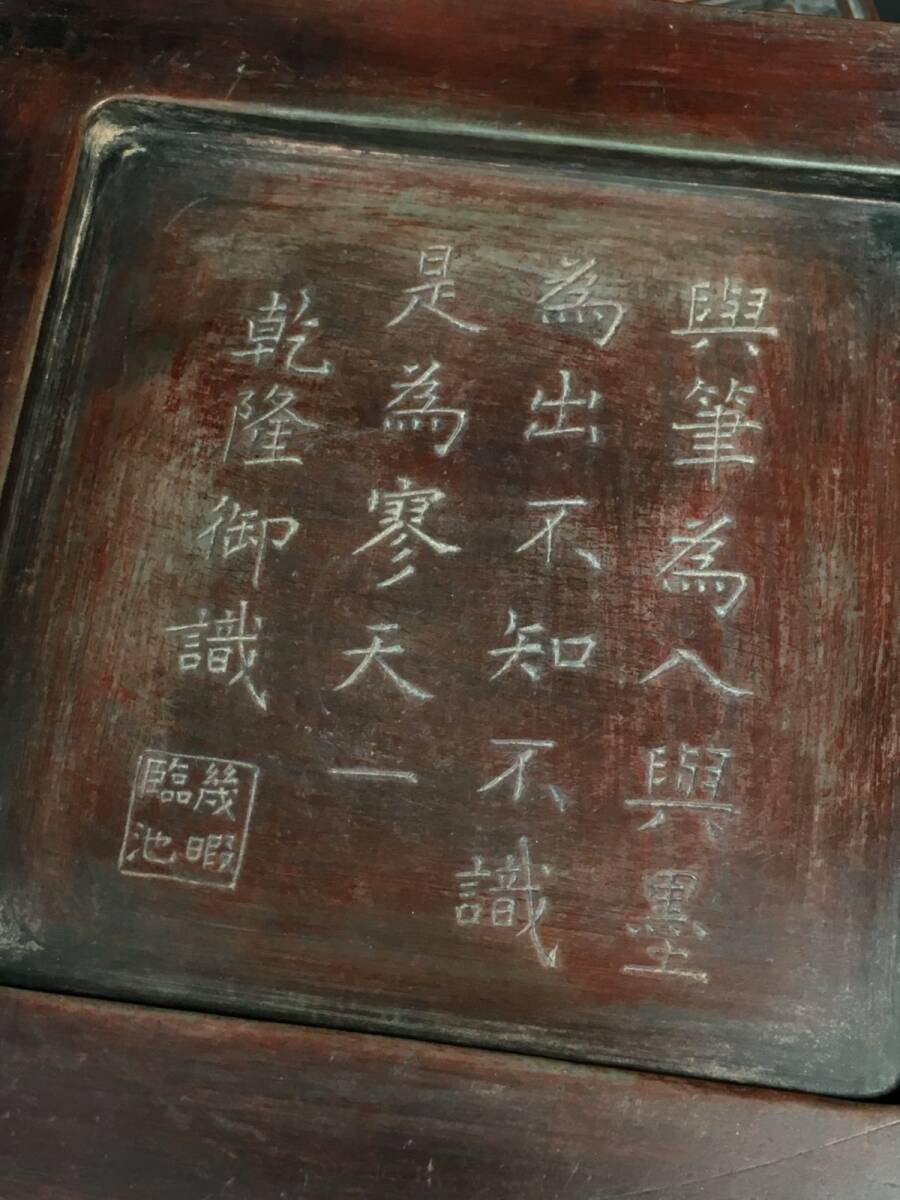 與筆為入與墨
為出不知不識
是為寥天一
乾隆御識
幾暇
臨池